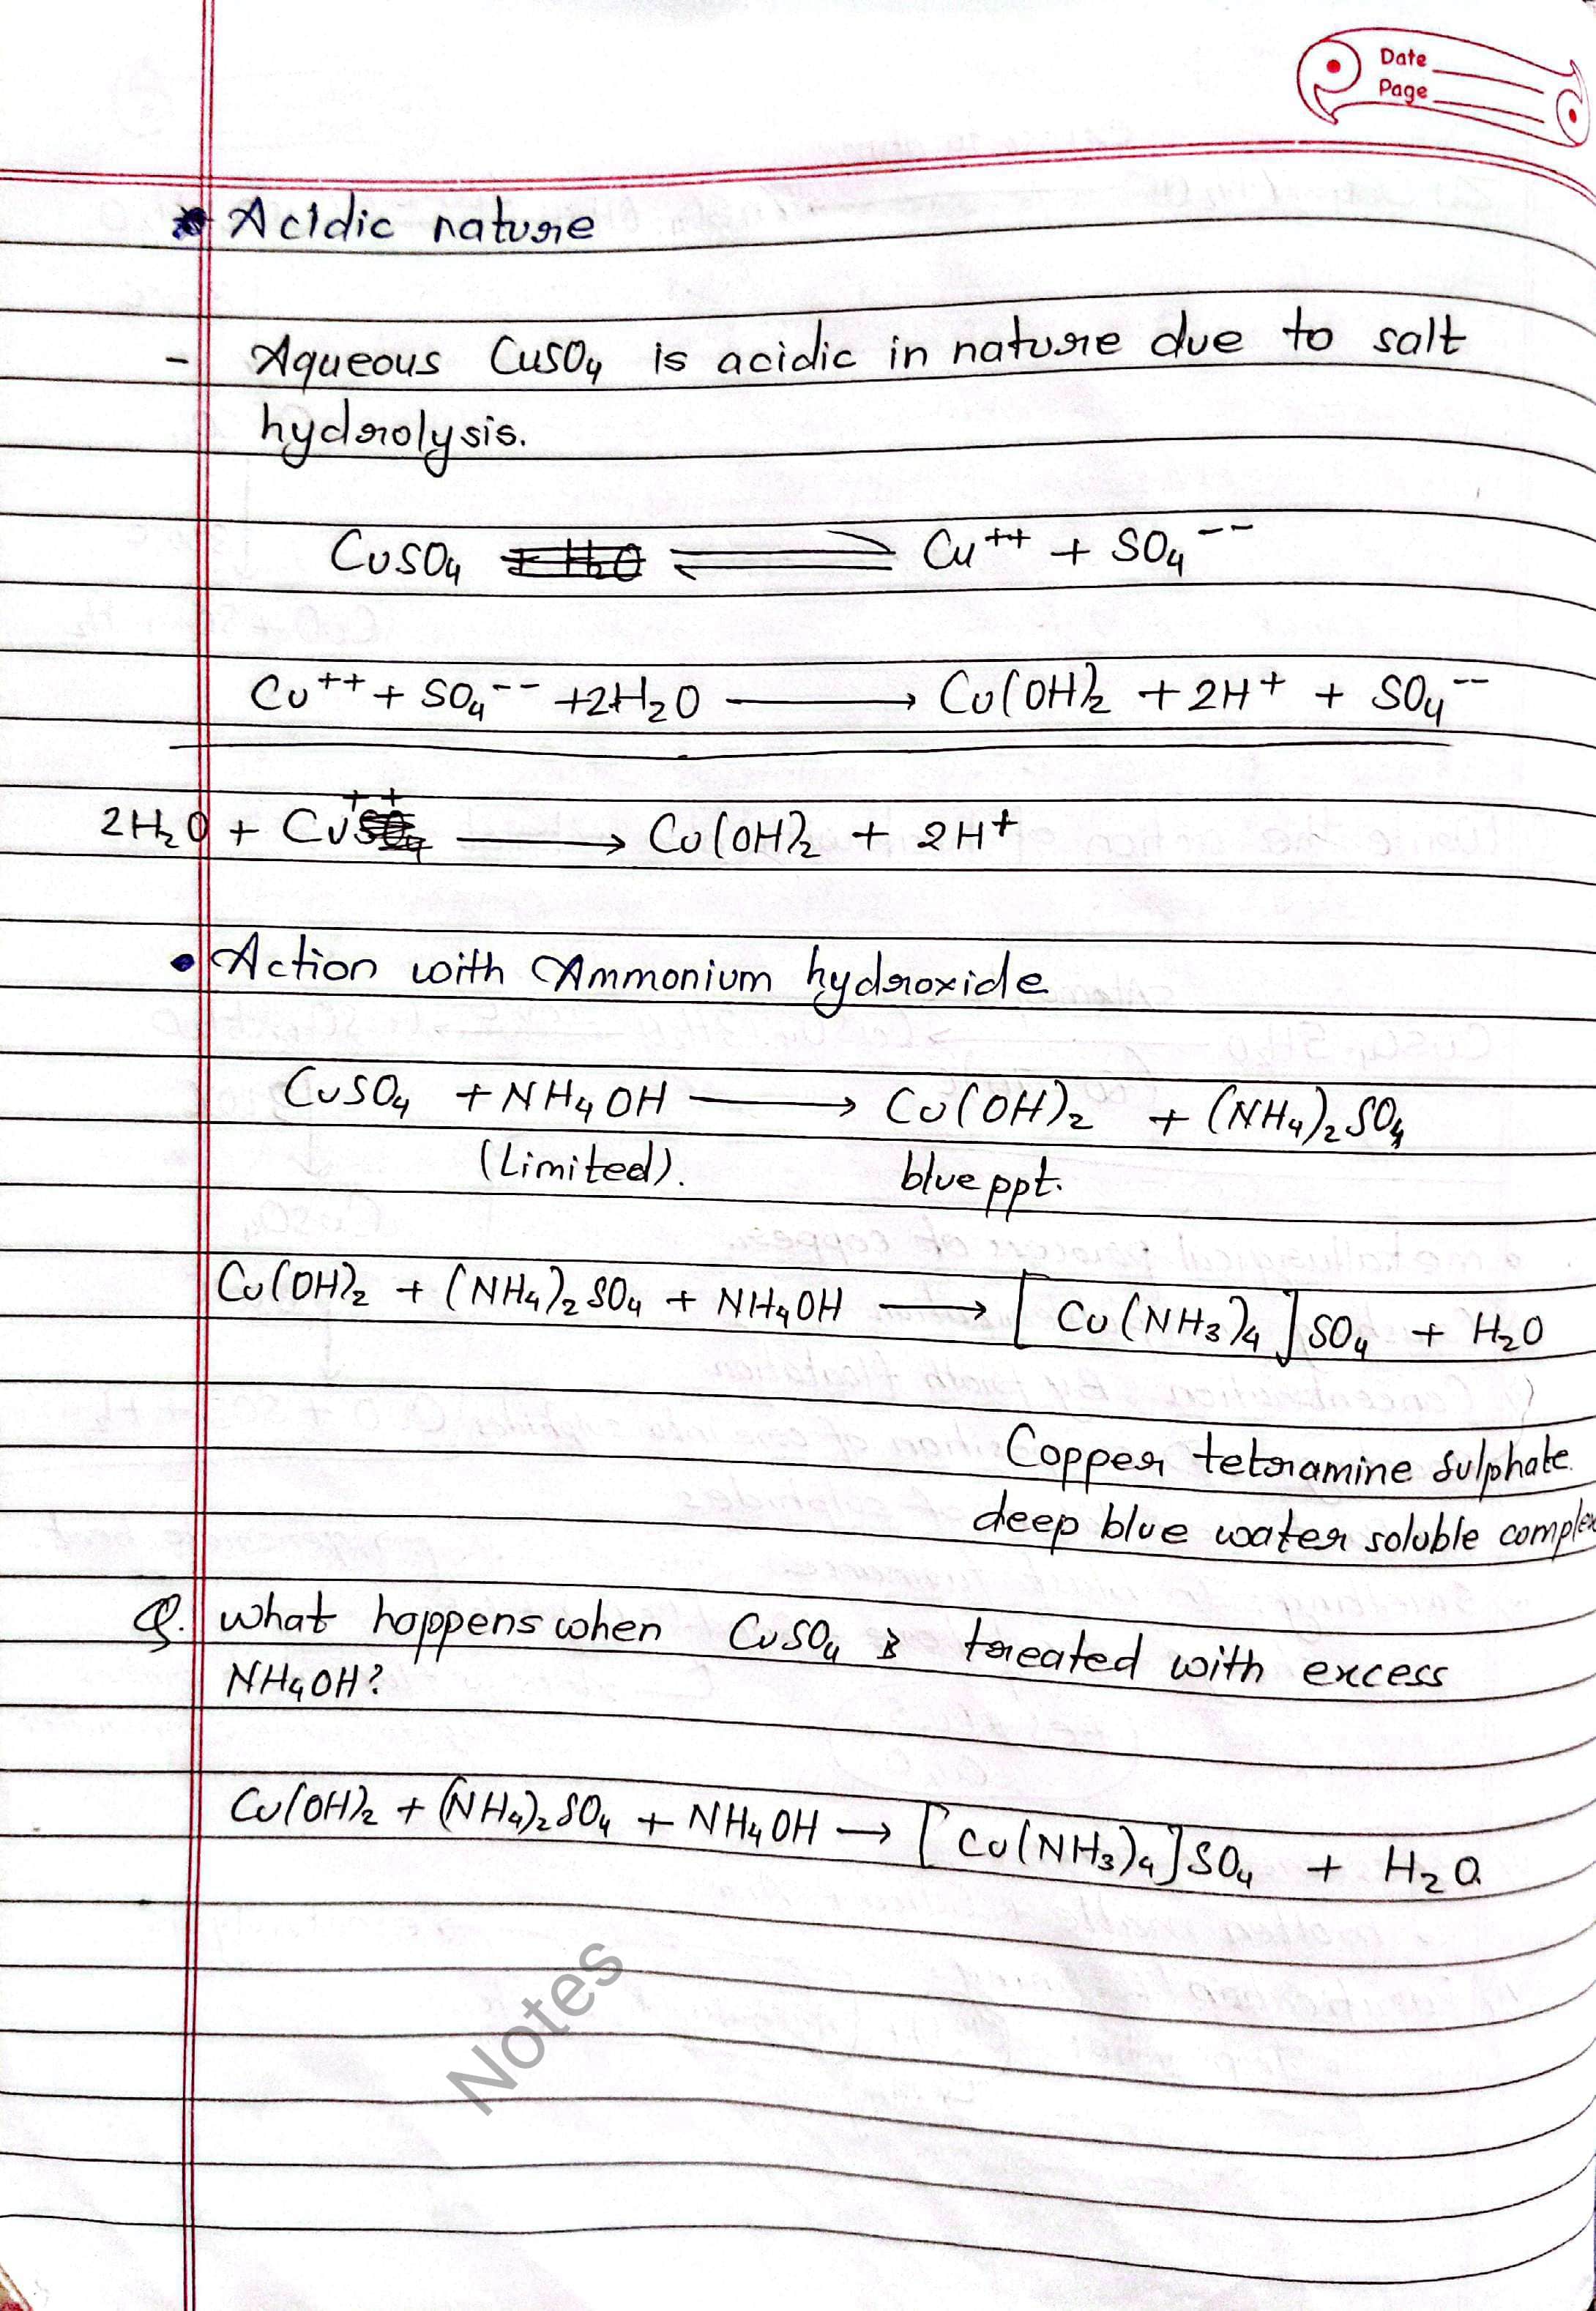 Date
Page
Acidic nature
- Aqueous CuSO₄ is acidic in nature due to salt
hydrolysis.
CuSO₄ ⇌ Cu⁺⁺ + SO₄⁻⁻
Cu⁺⁺ + SO₄⁻⁻ +2H₂O ⟶ Cu(OH)₂ + 2H⁺ + SO₄⁻⁻
2H₂O + Cu⁺⁺ ⟶ Cu(OH)₂ + 2H⁺
• Action with Ammonium hydroxide
CuSO₄ + NH₄OH ⟶ Cu(OH)₂ + (NH₄)₂SO₄
(Limited). blue ppt.
Cu(OH)₂ + (NH₄)₂SO₄ + NH₄OH ⟶ [Cu(NH₃)₄]SO₄ + H₂O
Copper tetramine sulphate.
deep blue water soluble complex
Q. what happens when CuSO₄ is treated with excess
NH₄OH?
Cu(OH)₂ + (NH₄)₂SO₄ + NH₄OH → [Cu(NH₃)₄]SO₄ + H₂O.
Notes